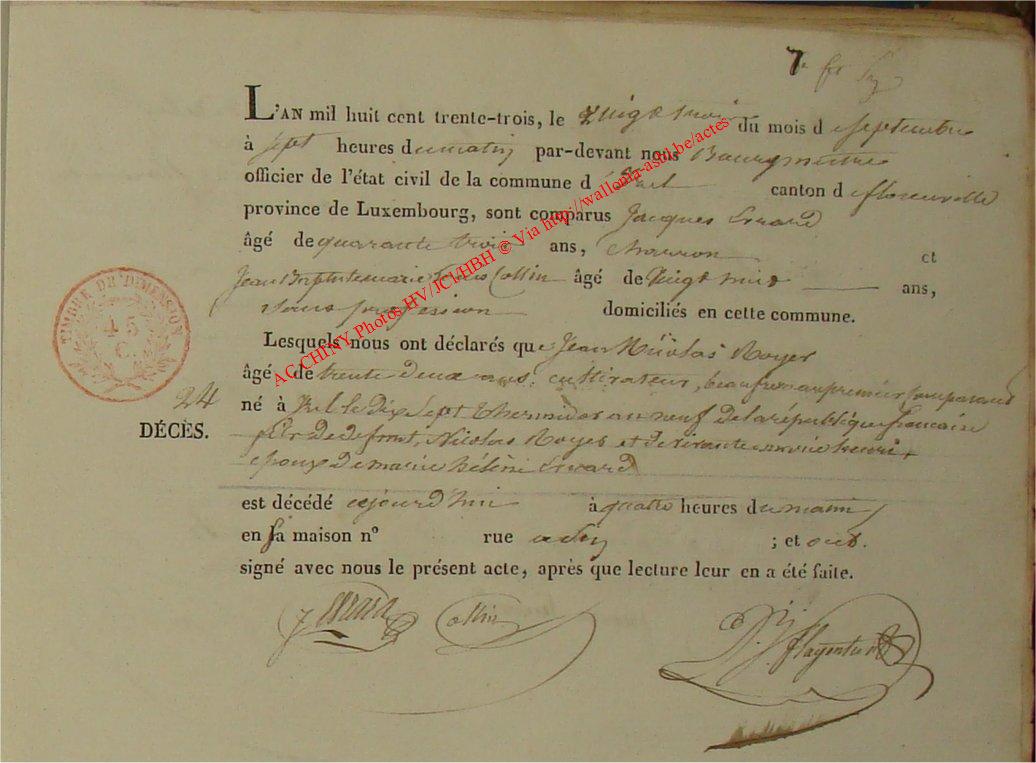 7
L'AN mil huit cent trente-trois, le vingt trois du mois de septembre
à sept heures du matin par-devant nous Bourgmestre
officier de l'état civil de la commune d canton de florenville
province de Luxembourg, sont comparus Jacques Errard
âgé de quarante trois ans, charron et
Jean Baptiste marie Collin âgé de vingt huit ans,
sans profession domiciliés en cette commune.
Lesquels nous ont déclarés que Jean Nicolas Royer
âgé de trente deux ans, cultivateur, beaufrere au premier comparant
24
né à le dix sept thermidor an neuf de la république francaise
DÉCÈS.
fils de defunt, Nicolas Royer et de vivante marie henri,
epoux de marie hélène Errard
est décédé aujourd'hui à quatre heures du matin
en sa maison n° rue ; et ont
signé avec nous le présent acte, après que lecture leur en a été faite.
J Errard Collin
TIMBRE DE DIMENSION
45 C.
AC CHINY Photos HV/JCl/HBH © Via http://wallonia-asbl.be/actes